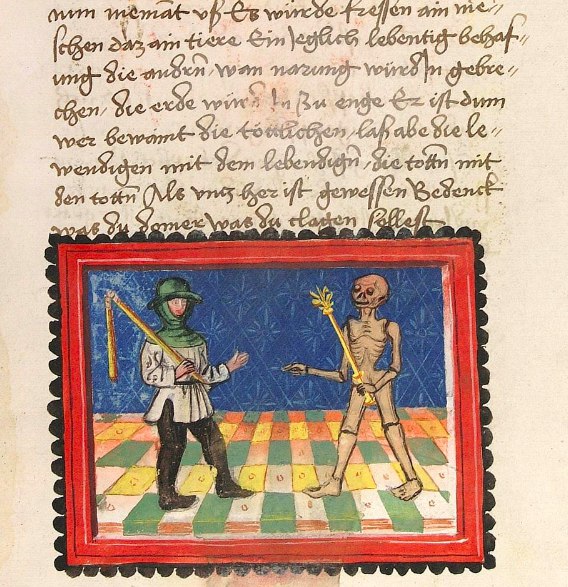 niemāt vß Es würde fressen ain me=
schen daz ain tiere Ein Jeglich lebentig behaf=
ung die andrn wan narung würd Jn gebre=
chen die erde Jn zu enge Er ist dum
wer bewaint die töttlichen laß abe die le=
wendigen mit dem lebendign die tottn mit
den tottn Als vntz her ist gewessen Bedenck
was du was du clagen sollest